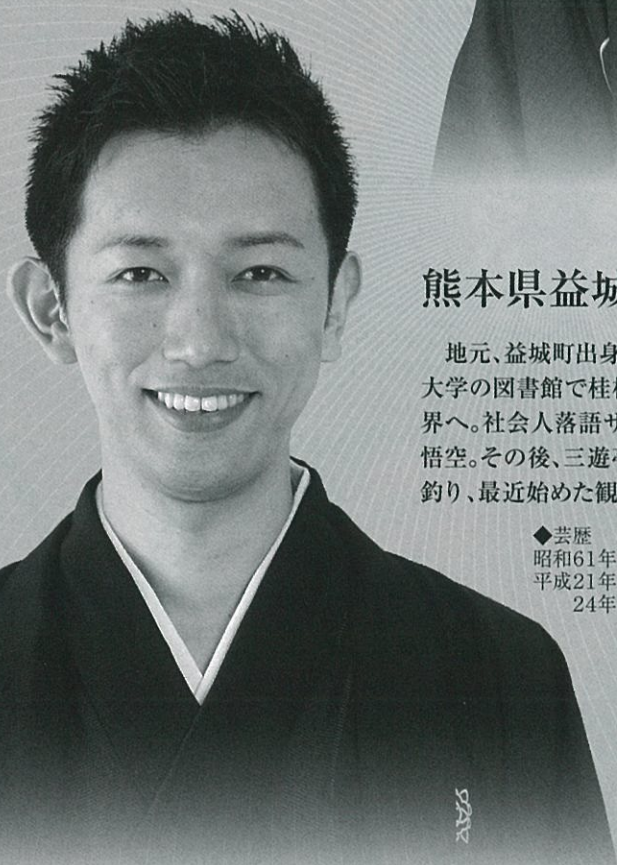 熊本県益城
地元、益城町出身
大学の図書館で桂枝
界へ。社会人落語サ
悟空。その後、三遊亭
釣り、最近始めた観
◆芸歴
昭和61年
平成21年
24年